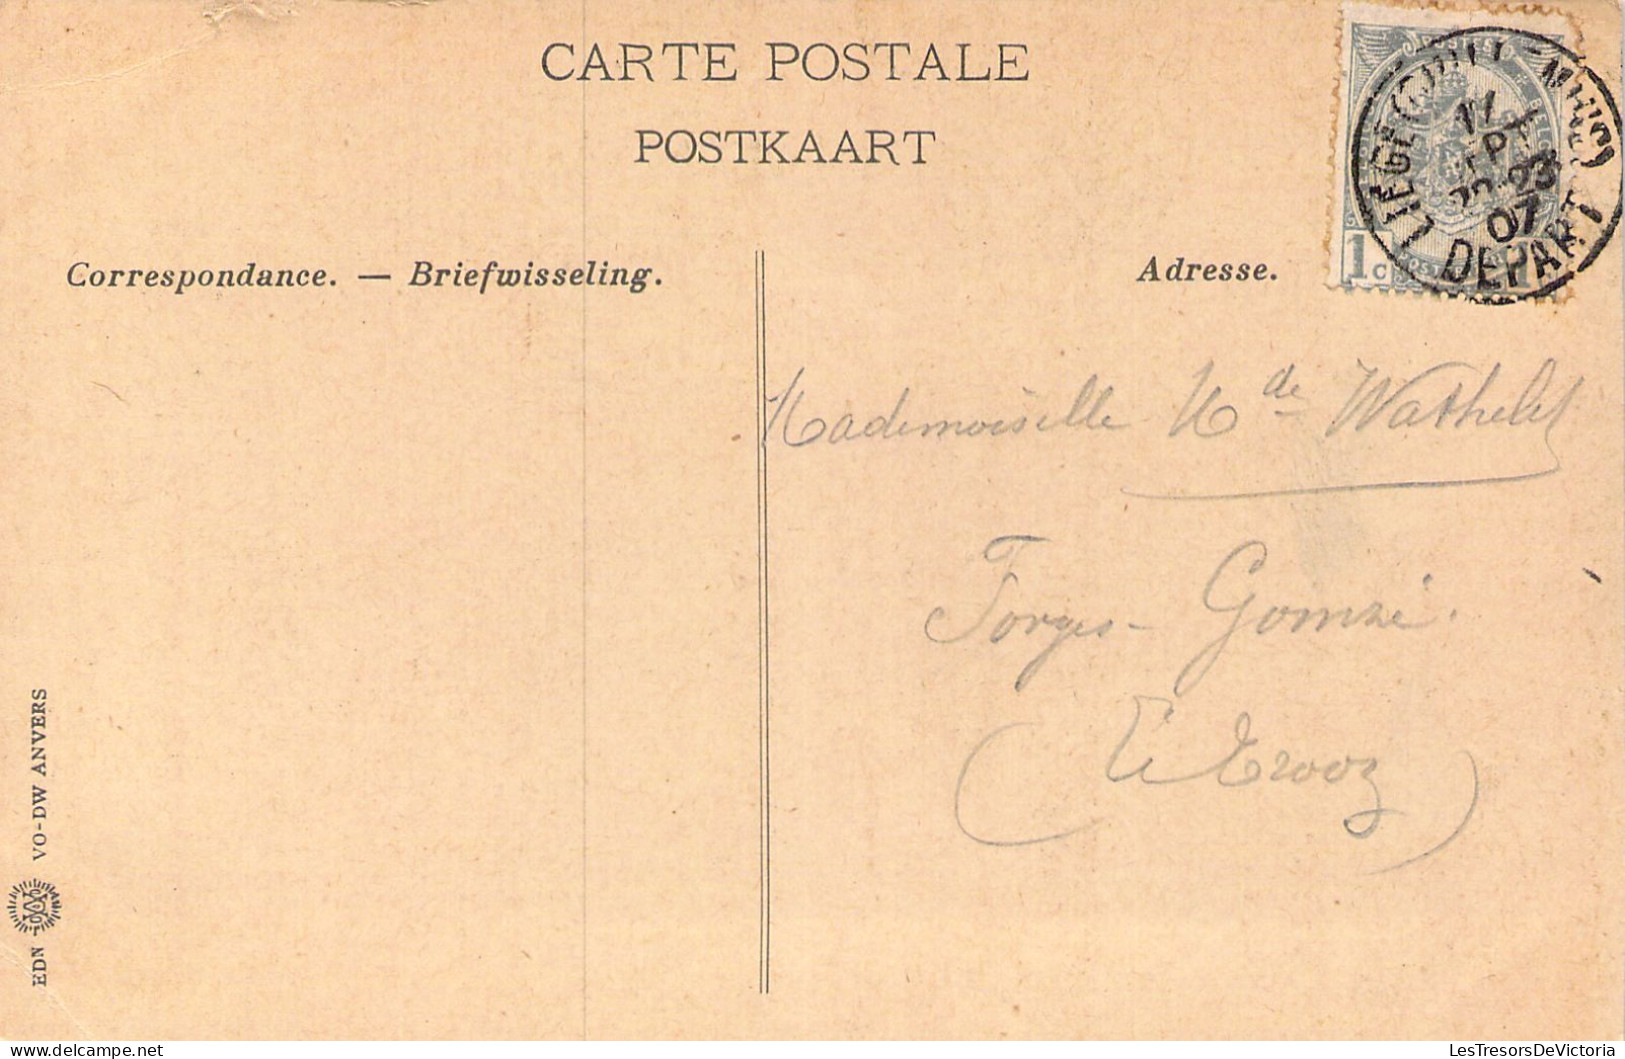 CARTE POSTALE
POSTKAART
Correspondance. — Briefwisseling.
Adresse.
1 C
LIÈGE (GUILLEMINS)
22-23
07
DEPART
Mademoiselle M de Wathelet
Forges - Gomzé.
( Trooz )
EDN VO-DW ANVERS
LesTresorsDeVictoria